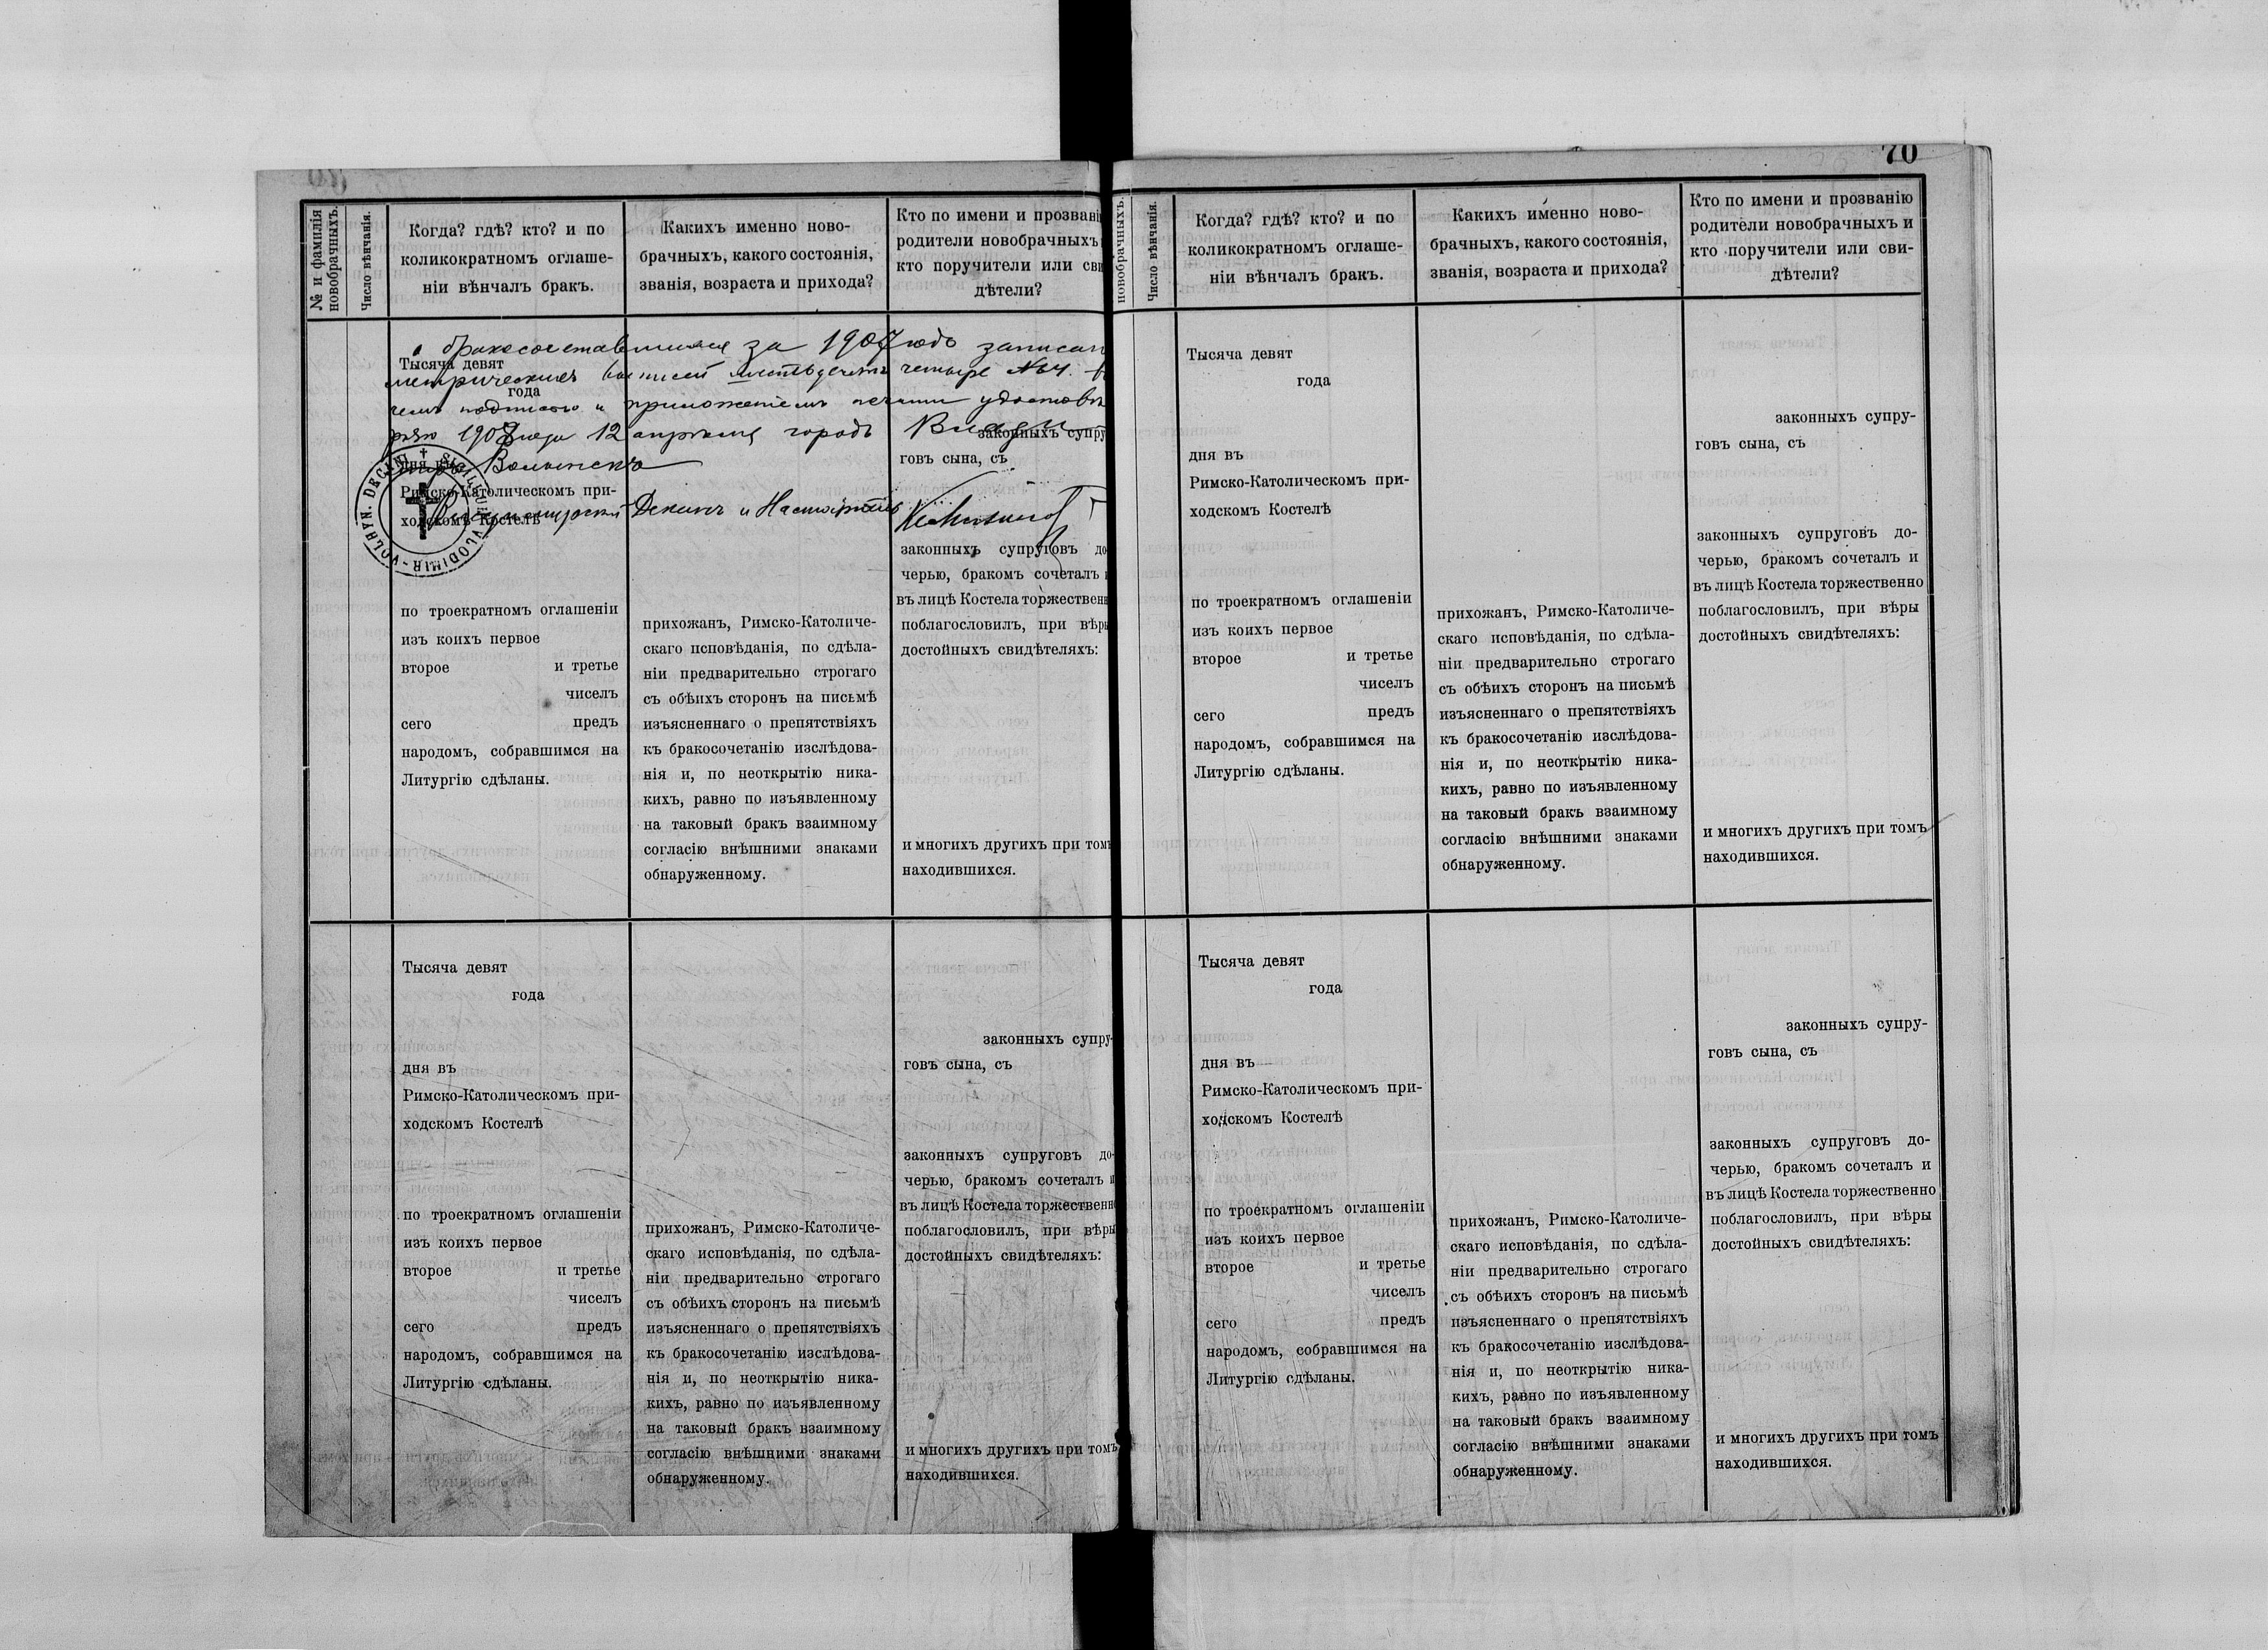 70
№ и фамилія новобрачныхъ.
Число вѣнчанія.
Когда? гдѣ? кто? и по
коликократномъ оглаше-
ніи вѣнчалъ бракъ.
Какихъ именно ново-
брачныхъ, какого состоянія,
званія, возраста и прихода?
Кто по имени и прозвані
родители новобрачныхъ
кто поручители или сви
дѣтели?
о бракосочетавшихся за 1907 годъ записан
метрическихъ записей шестьдесятъ четыре №64.
чемъ подписью и приложеніемъ печати удостовѣ
ряю 1908 года 12 апрѣля городъ Влади
Волынскъ
Владимирскій Деканъ и Настоятель
SIGILLUM VLODIMIR-VOLHYN. DECANI
Тысяча девят
года
законныхъ супру
говъ сына, съ
дня въ
Римско-Католическомъ при-
ходскомъ Костелѣ
законныхъ супруговъ до
черью, бракомъ сочеталъ
въ лицѣ Костела торжественн
поблагословилъ, при вѣры
достойныхъ свидѣтеляхъ:
по троекратномъ оглашеніи
изъ коихъ первое
второе и третье
чиселъ
сего предъ
народомъ, собравшимся на
Литургію сдѣланы.
прихожанъ, Римско-Католиче-
скаго исповѣданія, по сдѣла-
ніи предварительно строгаго
съ обѣихъ сторонъ на письмѣ
изъясненнаго о препятствіяхъ
къ бракосочетанію изслѣдова-
нія и, по неоткрытію ника-
кихъ, равно по изъявленному
на таковый бракъ взаимному
согласію внѣшними знаками
обнаруженному.
и многихъ другихъ при томъ
находившихся.
Тысяча девят
года
дня въ
Римско-Католическомъ при-
ходскомъ Костелѣ
по троекратномъ оглашеніи
изъ коихъ первое
второе и третье
чиселъ
сего предъ
народомъ, собравшимся на
Литургію сдѣланы.
прихожанъ, Римско-Католиче-
скаго исповѣданія, по сдѣла-
ніи предварительно строгаго
съ обѣихъ сторонъ на письмѣ
изъясненнаго о препятствіяхъ
къ бракосочетанію изслѣдова-
нія и, по неоткрытію ника-
кихъ, равно по изъявленному
на таковый бракъ взаимному
согласію внѣшними знаками
обнаруженному.
законныхъ супру-
говъ сына, съ
законныхъ супруговъ до-
черью, бракомъ сочеталъ и
въ лицѣ Костела торжественн
поблагословилъ, при вѣры
достойныхъ свидѣтеляхъ:
и многихъ другихъ при томъ
находившихся.
новобрачныхъ.
Число вѣнчанія.
Когда? гдѣ? кто? и по
коликократномъ оглаше-
ніи вѣнчалъ бракъ.
Какихъ именно ново-
брачныхъ, какого состоянія,
званія, возраста и прихода?
Кто по имени и прозванію
родители новобрачныхъ и
кто поручители или сви-
дѣтели?
Тысяча девят
года
дня въ
Римско-Католическомъ при-
ходскомъ Костелѣ
по троекратномъ оглашеніи
изъ коихъ первое
второе и третье
чиселъ
сего предъ
народомъ, собравшимся на
Литургію сдѣланы.
прихожанъ, Римско-Католиче-
скаго исповѣданія, по сдѣла-
ніи предварительно строгаго
съ обѣихъ сторонъ на письмѣ
изъясненнаго о препятствіяхъ
къ бракосочетанію изслѣдова-
нія и, по неоткрытію ника-
кихъ, равно по изъявленному
на таковый бракъ взаимному
согласію внѣшними знаками
обнаруженному.
законныхъ супру-
говъ сына, съ
законныхъ супруговъ до-
черью, бракомъ сочеталъ и
въ лицѣ Костела торжественно
поблагословилъ, при вѣры
достойныхъ свидѣтеляхъ:
и многихъ другихъ при томъ
находившихся.
Тысяча девят
года
дня въ
Римско-Католическомъ при-
ходскомъ Костелѣ
по троекратномъ оглашеніи
изъ коихъ первое
второе и третье
чиселъ
сего предъ
народомъ, собравшимся на
Литургію сдѣланы.
прихожанъ, Римско-Католиче-
скаго исповѣданія, по сдѣла-
ніи предварительно строгаго
съ обѣихъ сторонъ на письмѣ
изъясненнаго о препятствіяхъ
къ бракосочетанію изслѣдова-
нія и, по неоткрытію ника-
кихъ, равно по изъявленному
на таковый бракъ взаимному
согласію внѣшними знаками
обнаруженному.
законныхъ супру-
говъ сына, съ
законныхъ супруговъ до-
черью, бракомъ сочеталъ и
въ лицѣ Костела торжественно
поблагословилъ, при вѣры
достойныхъ свидѣтеляхъ:
и многихъ другихъ при томъ
находившихся.